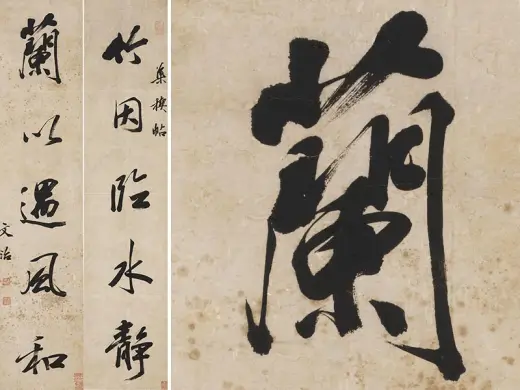 竹因臨水靜
集禊帖
蘭以遇風和
文治
蘭